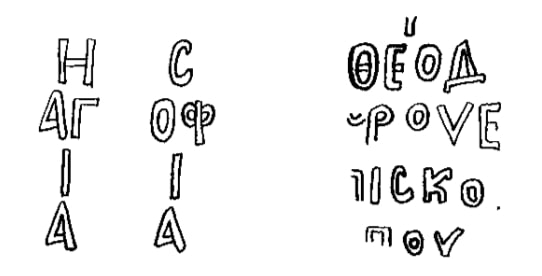 Η
ΑΓ
Ι
Α
C
ΟΦ
Ι
Α
ΘΕΟΔ
ΡΟVΕ
ΠΙCΚΟ
ΠΟV